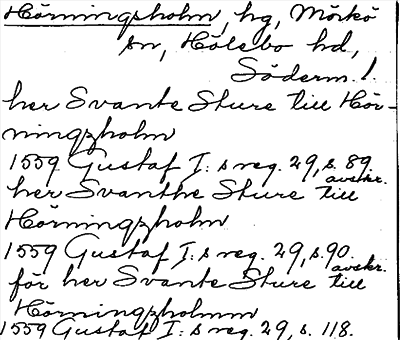 Hörningsholm, hg, Mörkö
sn, Hölebo hd,
Söderm. l.
her Svante Sture till Hör-
ningzholm
1559 Gustaf I:s reg. 29, s. 89
avskr.
her Svanthe Sture till
Hörningzholm
1559 Gustaf I:s reg. 29, s. 90.
avskr.
för her Svante Sture till
Hörningzholmm
1559 Gustaf I:s reg. 29, s. 118.